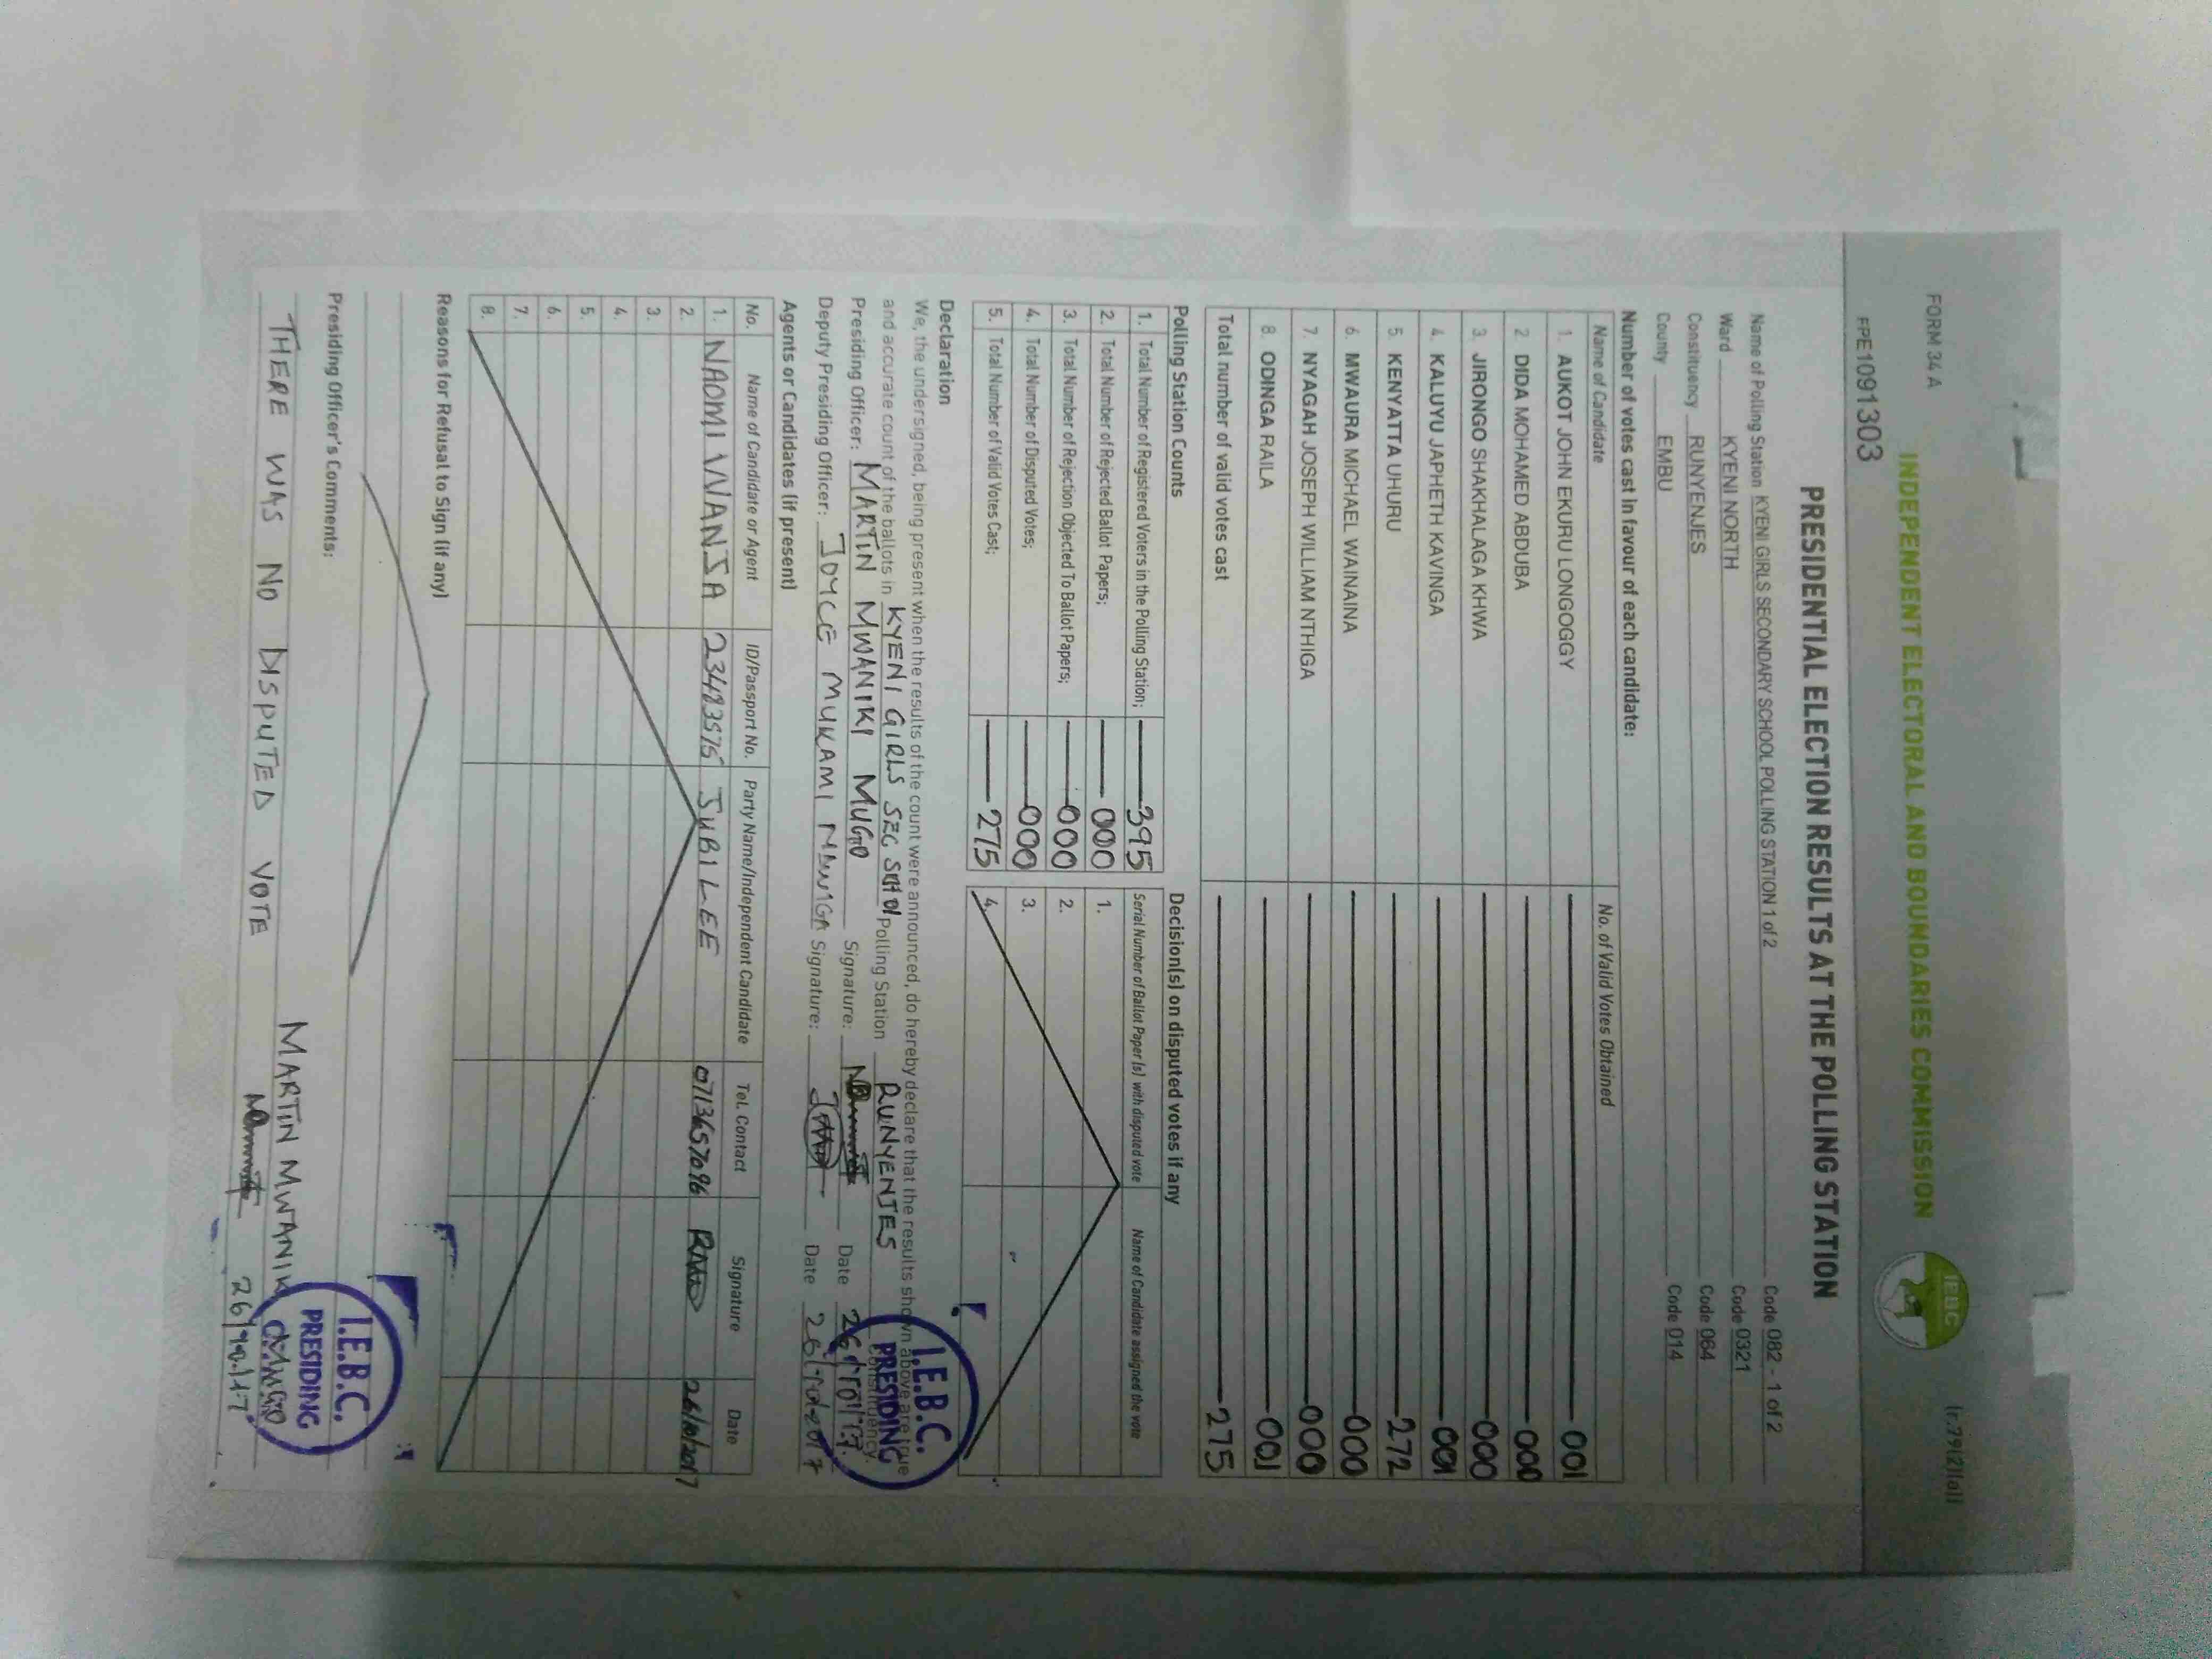 FORM 34 A
(r.79(2)(a))
INDEPENDENT ELECTORAL AND BOUNDARIES COMMISSION
IEBC
FPE1091303
PRESIDENTIAL ELECTION RESULTS AT THE POLLING STATION
Name of Polling Station KYENI GIRLS SECONDARY SCHOOL POLLING STATION 1 of 2 Code 082 - 1 of 2
Ward KYENI NORTH Code 0321
Constituency RUNYENJES Code 064
County EMBU Code 014
Number of votes cast in favour of each candidate:
Name of Candidate No. of Valid Votes Obtained
1. AUKOT JOHN EKURU LONGOGGY 001
2 DIDA MOHAMED ABDUBA 000
3. JIRONGO SHAKHALAGA KHWA 000
4. KALUYU JAPHETH KAVINGA 001
5. KENYATTA UHURU 272
6. MWAURA MICHAEL WAINAINA 000
7. NYAGAH JOSEPH WILLIAM NTHIGA 000
8. ODINGA RAILA 001
Total number of valid votes cast 275
Polling Station Counts Decision(s) on disputed votes if any
1. Total Number of Registered Voters in the Polling Station; 395 Serial Number of Ballot Paper (s) with disputed vote Name of Candidate assigned the vote
2. Total Number of Rejected Ballot Papers; 000 1.
3. Total Number of Rejection Objected To Ballot Papers; 000 2.
4. Total Number of Disputed Votes; 000 3.
5. Total Number of Valid Votes Cast; 275 4.
Declaration
We, the undersigned, being present when the results of the count were announced, do hereby declare that the results shown above are true
and accurate count of the ballots in KYENI GIRLS SEC SCHOOL Polling Station RUNYENJES Constituency.
Presiding Officer: MARTIN MWANIKI MUGO Signature: Date 26/10/17.
Deputy Presiding Officer: JOYCE MUKAMI Signature: Date 26/10/2017
I.E.B.C.
PRESIDING
Agents or Candidates (if present)
No. Name of Candidate or Agent ID/Passport No. Party Name/Independent Candidate Tel. Contact Signature Date
1. NAOMI WANJA 23483575 JUBILEE 0713657096 26/10/2017
2.
3.
4.
5.
6.
7.
8.
Reasons for Refusal to Sign (if any)
Presiding Officer's Comments:
THERE WAS NO DISPUTED VOTE MARTIN MWANIKI
26/10/17
I.E.B.C.
PRESIDING